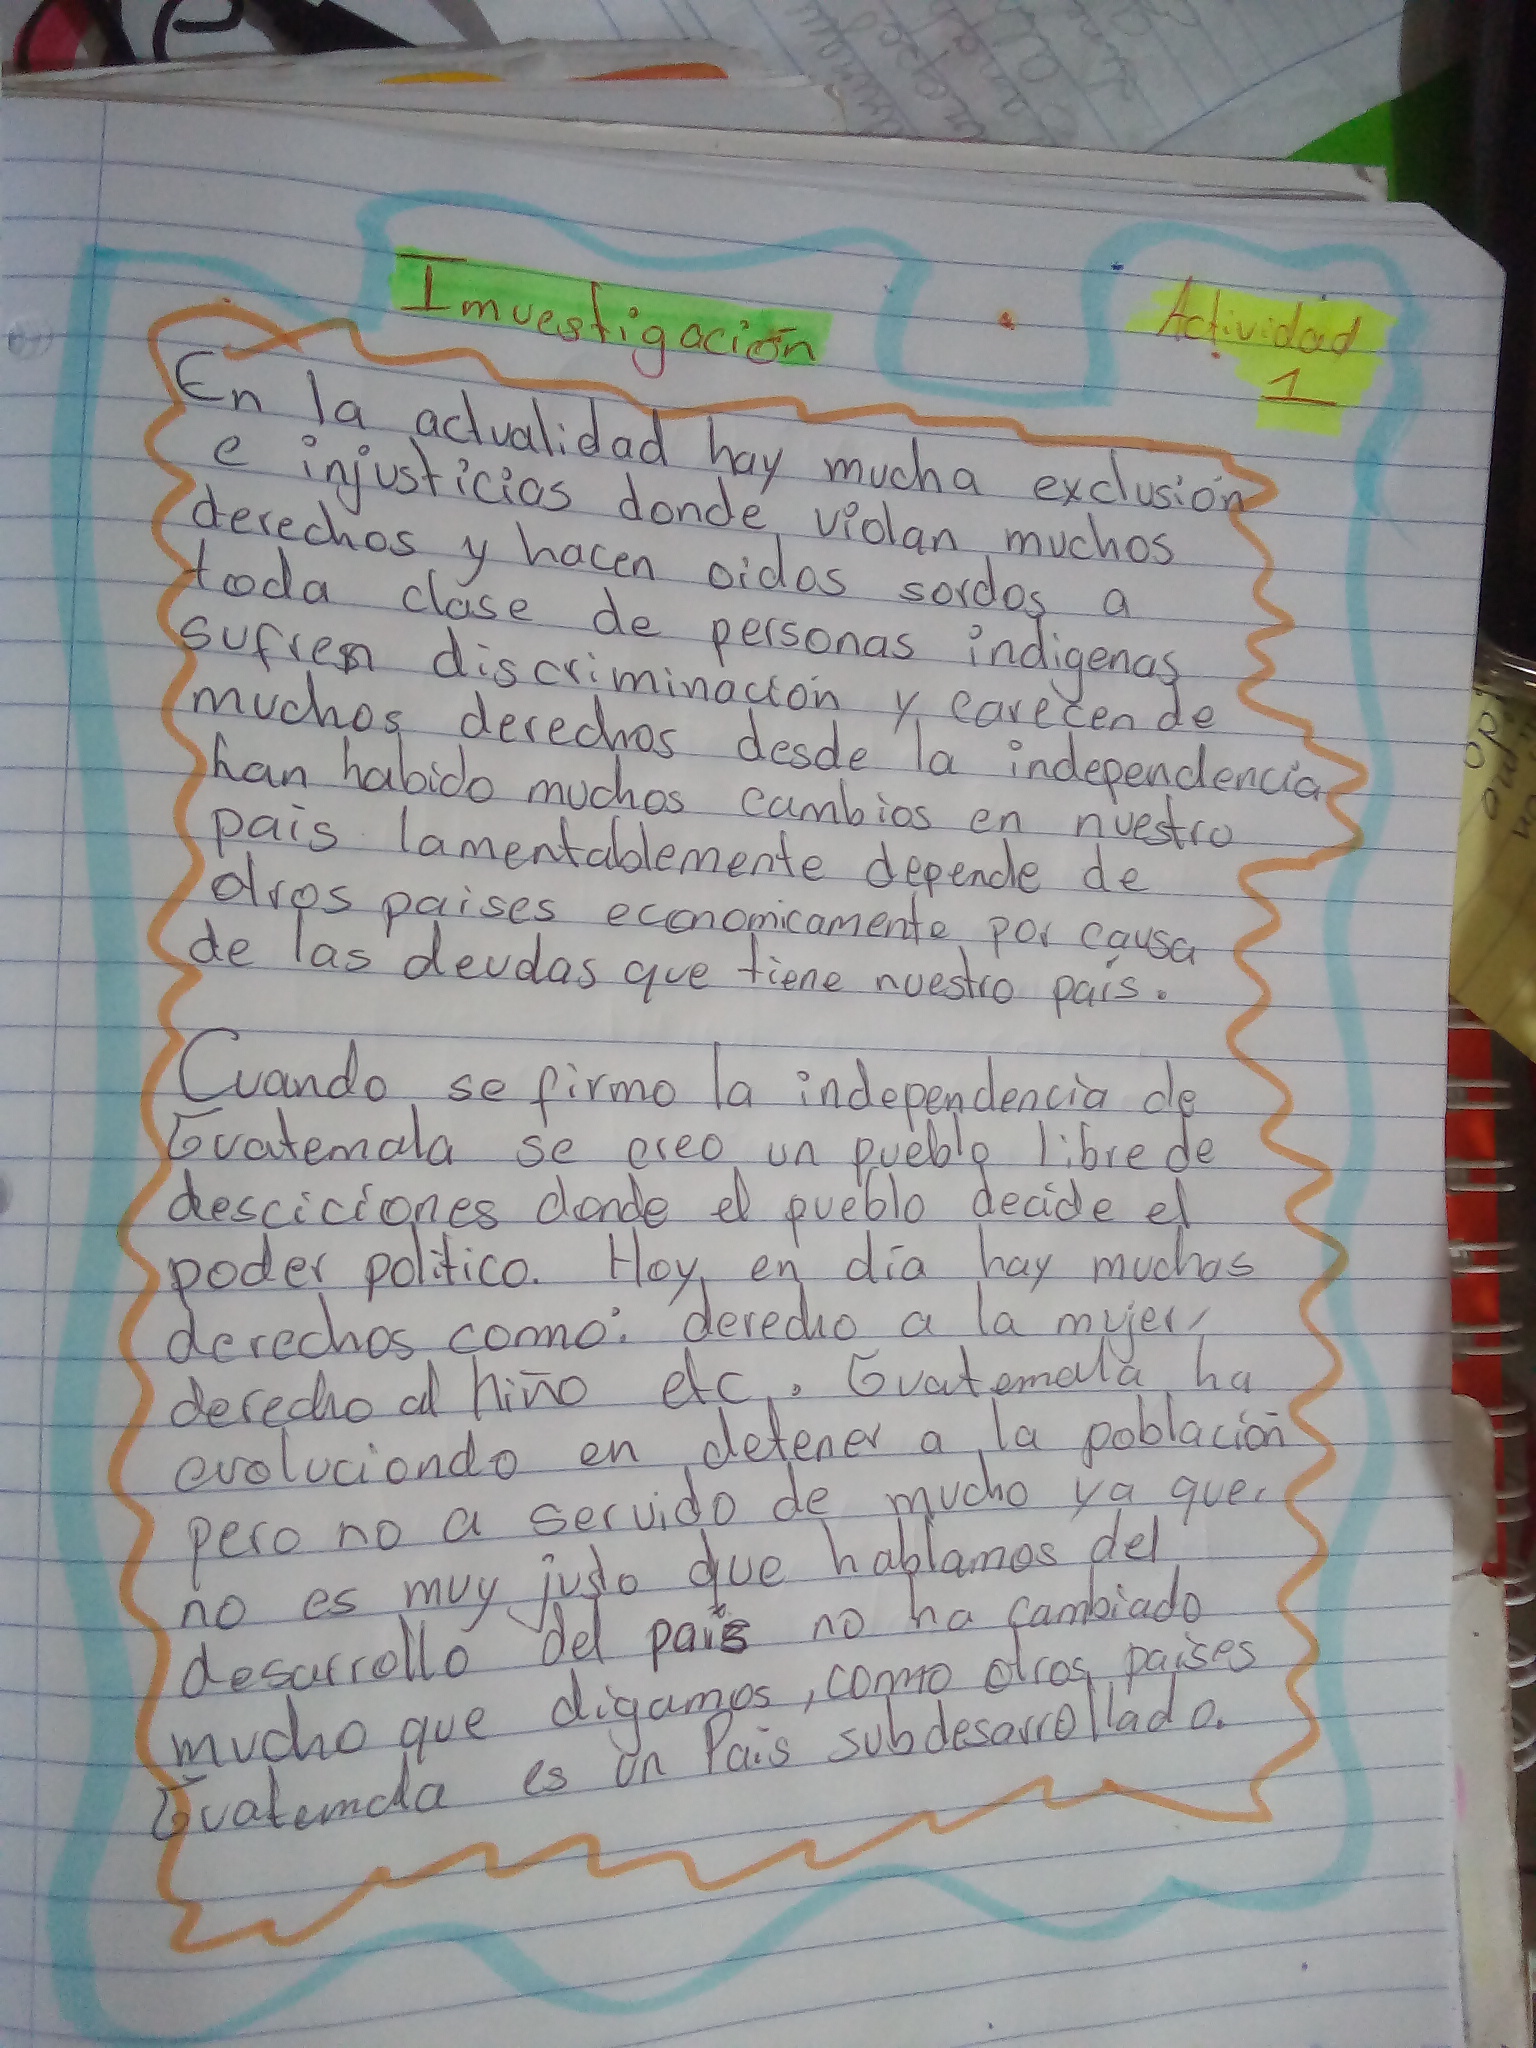 Imvestigación
Actividad
1
En la actualidad hay mucha exclusión
e injusticias donde violan muchos
derechos y hacen oidos sordos a
toda clase de personas indigenas
sufren discriminación y carecen de
muchos derechos desde la independencia
han habido muchos cambios en nuestro
pais lamentablemente depende de
otros paises economicamente por causa
de las deudas que tiene nuestro país.
Cuando se firmo la independencia de
Guatemala se creo un pueblo libre de
desciciones donde el pueblo decide el
poder politico. Hoy en día hay muchos
derechos como: derecho a la mujer,
derecho al niño etc. Guatemala ha
evoluciondo en detener a la población
pero no a servido de mucho ya que
no es muy justo que hablamos del
desarrollo del pais no ha cambiado
mucho que digamos, como otros paises
Guatemala es un Pais subdesarrollado.